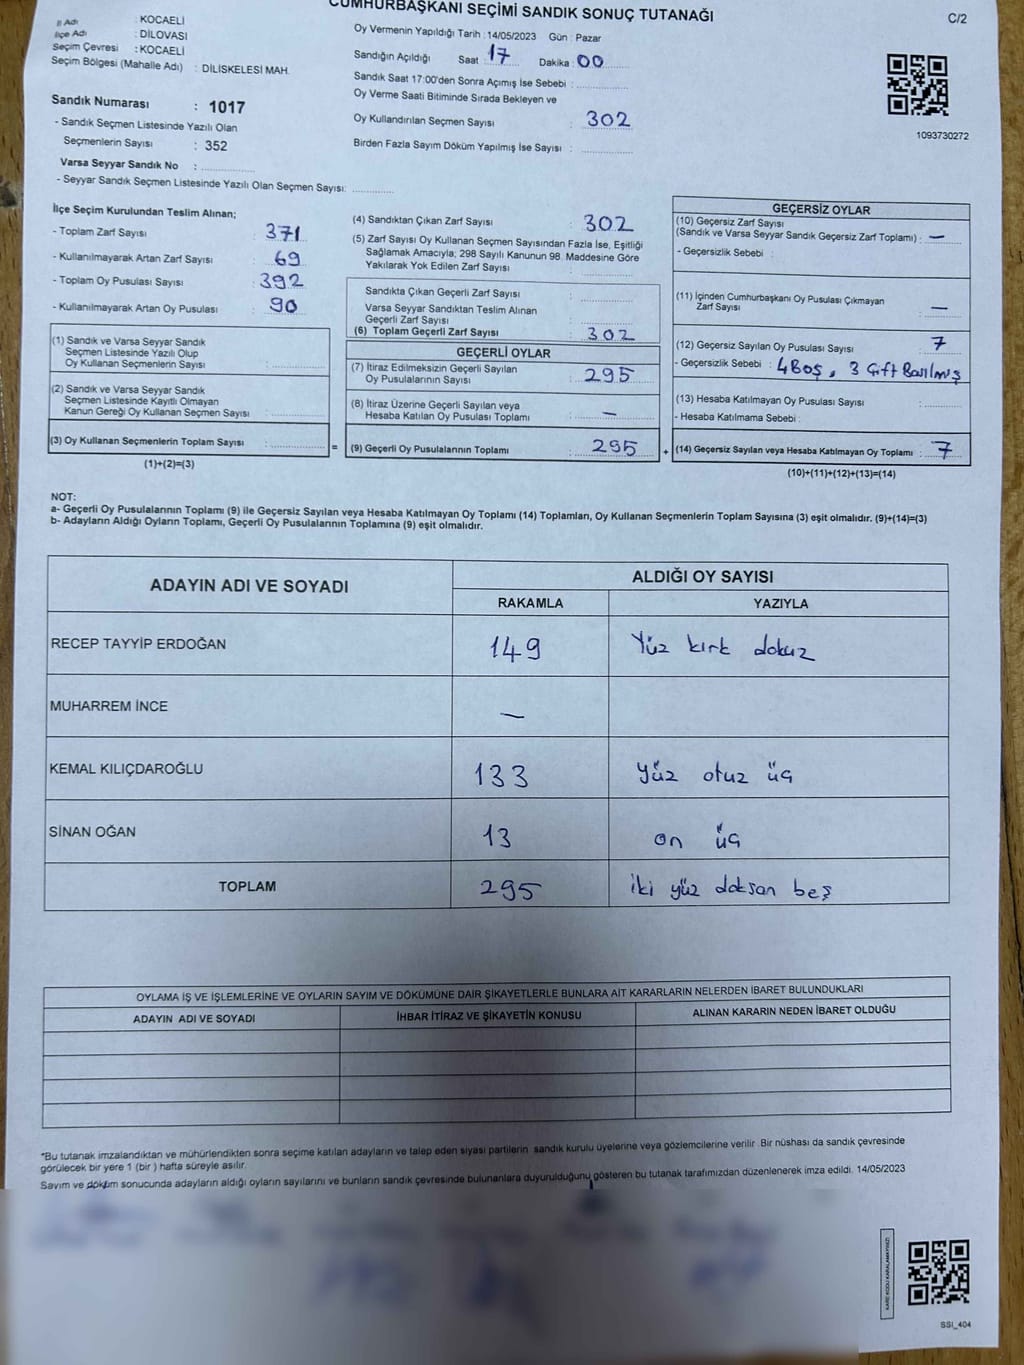 CUMHURBAŞKANI SEÇİMİ SANDIK SONUÇ TUTANAĞI
C/2
İl Adı : KOCAELİ
İlçe Adı : DİLOVASI
Seçim Çevresi : KOCAELİ
Seçim Bölgesi (Mahalle Adı) : DİLİSKELESİ MAH.
Oy Vermenin Yapıldığı Tarih : 14/05/2023 Gün : Pazar
Sandığın Açıldığı Saat 17 Dakika : 00
Sandık Saat 17:00'den Sonra Açımış İse Sebebi :
Oy Verme Saati Bitiminde Sırada Bekleyen ve
Oy Kullandırılan Seçmen Sayısı : 302
Birden Fazla Sayım Döküm Yapılmış İse Sayısı :
1093730272
Sandık Numarası : 1017
- Sandık Seçmen Listesinde Yazılı Olan
Seçmenlerin Sayısı : 352
Varsa Seyyar Sandık No :
- Seyyar Sandık Seçmen Listesinde Yazılı Olan Seçmen Sayısı:
İlçe Seçim Kurulundan Teslim Alınan;
- Toplam Zarf Sayısı : 371
- Kullanılmayarak Artan Zarf Sayısı : 69
- Toplam Oy Pusulası Sayısı : 392
- Kullanılmayarak Artan Oy Pusulası : 90
(1) Sandık ve Varsa Seyyar Sandık
Seçmen Listesinde Yazılı Olup
Oy Kullanan Seçmenlerin Sayısı :
(2) Sandık ve Varsa Seyyar Sandık
Seçmen Listesinde Kayıtlı Olmayan
Kanun Gereği Oy Kullanan Seçmen Sayısı :
(3) Oy Kullanan Seçmenlerin Toplam Sayısı : =
(1)+(2)=(3)
(4) Sandıktan Çıkan Zarf Sayısı : 302
(5) Zarf Sayısı Oy Kullanan Seçmen Sayısından Fazla İse, Eşitliği
Sağlamak Amacıyla; 298 Sayılı Kanunun 98. Maddesine Göre
Yakılarak Yok Edilen Zarf Sayısı :
Sandıkta Çıkan Geçerli Zarf Sayısı :
Varsa Seyyar Sandıktan Teslim Alınan
Geçerli Zarf Sayısı :
(6) Toplam Geçerli Zarf Sayısı : 302
GEÇERLİ OYLAR
(7) İtiraz Edilmeksizin Geçerli Sayılan
Oy Pusulalarının Sayısı : 295
(8) İtiraz Üzerine Geçerli Sayılan veya
Hesaba Katılan Oy Pusulası Toplamı : —
(9) Geçerli Oy Pusulalarının Toplamı : 295 +
GEÇERSİZ OYLAR
(10) Geçersiz Zarf Sayısı
(Sandık ve Varsa Seyyar Sandık Geçersiz Zarf Toplamı) : —
- Geçersizlik Sebebi :
(11) İçinden Cumhurbaşkanı Oy Pusulası Çıkmayan
Zarf Sayısı : —
(12) Geçersiz Sayılan Oy Pusulası Sayısı : 7
- Geçersizlik Sebebi : 4 Boş, 3 Çift Basılmış
(13) Hesaba Katılmayan Oy Pusulası Sayısı :
- Hesaba Katılmama Sebebi :
(14) Geçersiz Sayılan veya Hesaba Katılmayan Oy Toplamı : 7
(10)+(11)+(12)+(13)=(14)
NOT:
a- Geçerli Oy Pusulalarının Toplamı (9) ile Geçersiz Sayılan veya Hesaba Katılmayan Oy Toplamı (14) Toplamları, Oy Kullanan Seçmenlerin Toplam Sayısına (3) eşit olmalıdır. (9)+(14)=(3)
b- Adayların Aldığı Oyların Toplamı, Geçerli Oy Pusulalarının Toplamına (9) eşit olmalıdır.
ADAYIN ADI VE SOYADI ALDIĞI OY SAYISI
RAKAMLA YAZIYLA
RECEP TAYYİP ERDOĞAN 149 Yüz kırk dokuz
MUHARREM İNCE —
KEMAL KILIÇDAROĞLU 133 yüz otuz üç
SİNAN OĞAN 13 on üç
TOPLAM 295 iki yüz doksan beş
OYLAMA İŞ VE İŞLEMLERİNE VE OYLARIN SAYIM VE DÖKÜMÜNE DAİR ŞİKAYETLERLE BUNLARA AİT KARARLARIN NELERDEN İBARET BULUNDUKLARI
ADAYIN ADI VE SOYADI İHBAR İTİRAZ VE ŞİKAYETİN KONUSU ALINAN KARARIN NEDEN İBARET OLDUĞU
*Bu tutanak imzalandıktan ve mühürlendikten sonra seçime katılan adayların ve talep eden siyasi partilerin sandık kurulu üyelerine veya gözlemcilerine verilir. Bir nüshası da sandık çevresinde
görülecek bir yere 1 (bir ) hafta süreyle asılır.
Sayım ve döküm sonucunda adayların aldığı oyların sayılarını ve bunların sandık çevresinde bulunanlara duyurulduğunu gösteren bu tutanak tarafımızdan düzenlenerek imza edildi. 14/05/2023
KARE KODU KARALAMAYINIZ!
SSI_404